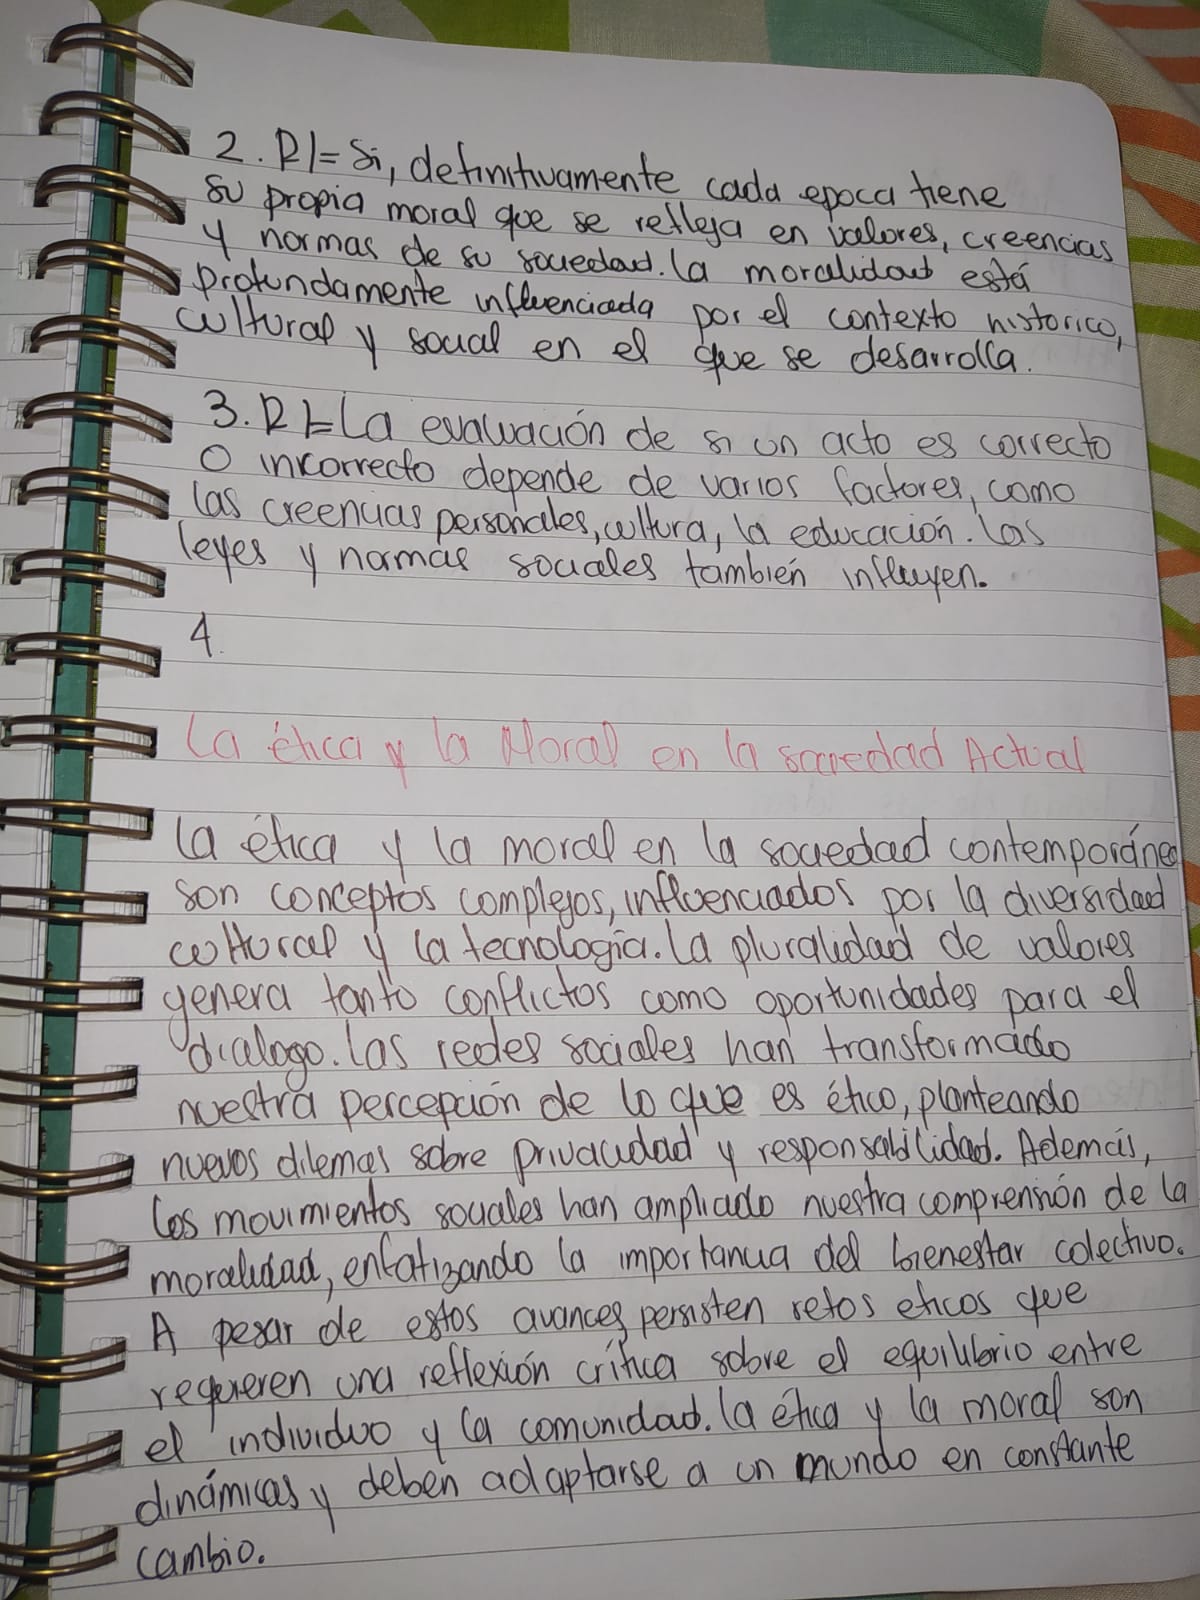 2. R/= Si, definitivamente cada epoca tiene
su propia moral que se refleja en valores, creencias
y normas de su sociedad. La moralidad está
profundamente influenciada por el contexto historico,
cultural y social en el que se desarrolla.
3. R/= La evaluación de si un acto es correcto
O incorrecto depende de varios factores, como
las creencias personales, cultura, la educación. Las
leyes y normas sociales también influyen.
4.
La ética y la Moral en la sociedad Actual
La ética y la moral en la sociedad contemporánea
son conceptos complejos, influenciados por la diversidad
cultural y la tecnología. La pluralidad de valores
genera tanto conflictos como oportunidades para el
dialogo. Las redes sociales han transformado
nuestra percepción de lo que es ético, planteando
nuevos dilemas sobre privacidad y responsabilidad. Además,
los movimientos sociales han ampliado nuestra comprensión de la
moralidad, enfatizando la importancia del bienestar colectivo.
A pesar de estos avances, persisten retos eticos que
requieren una reflexión crítica sobre el equilibrio entre
el individuo y la comunidad. La ética y la moral son
dinámicas y deben adaptarse a un mundo en constante
cambio.